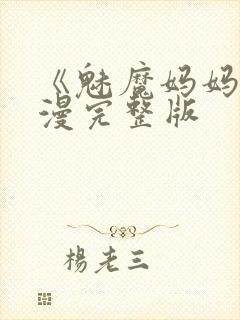 《魅魔妈妈
漫完整版
楊老三